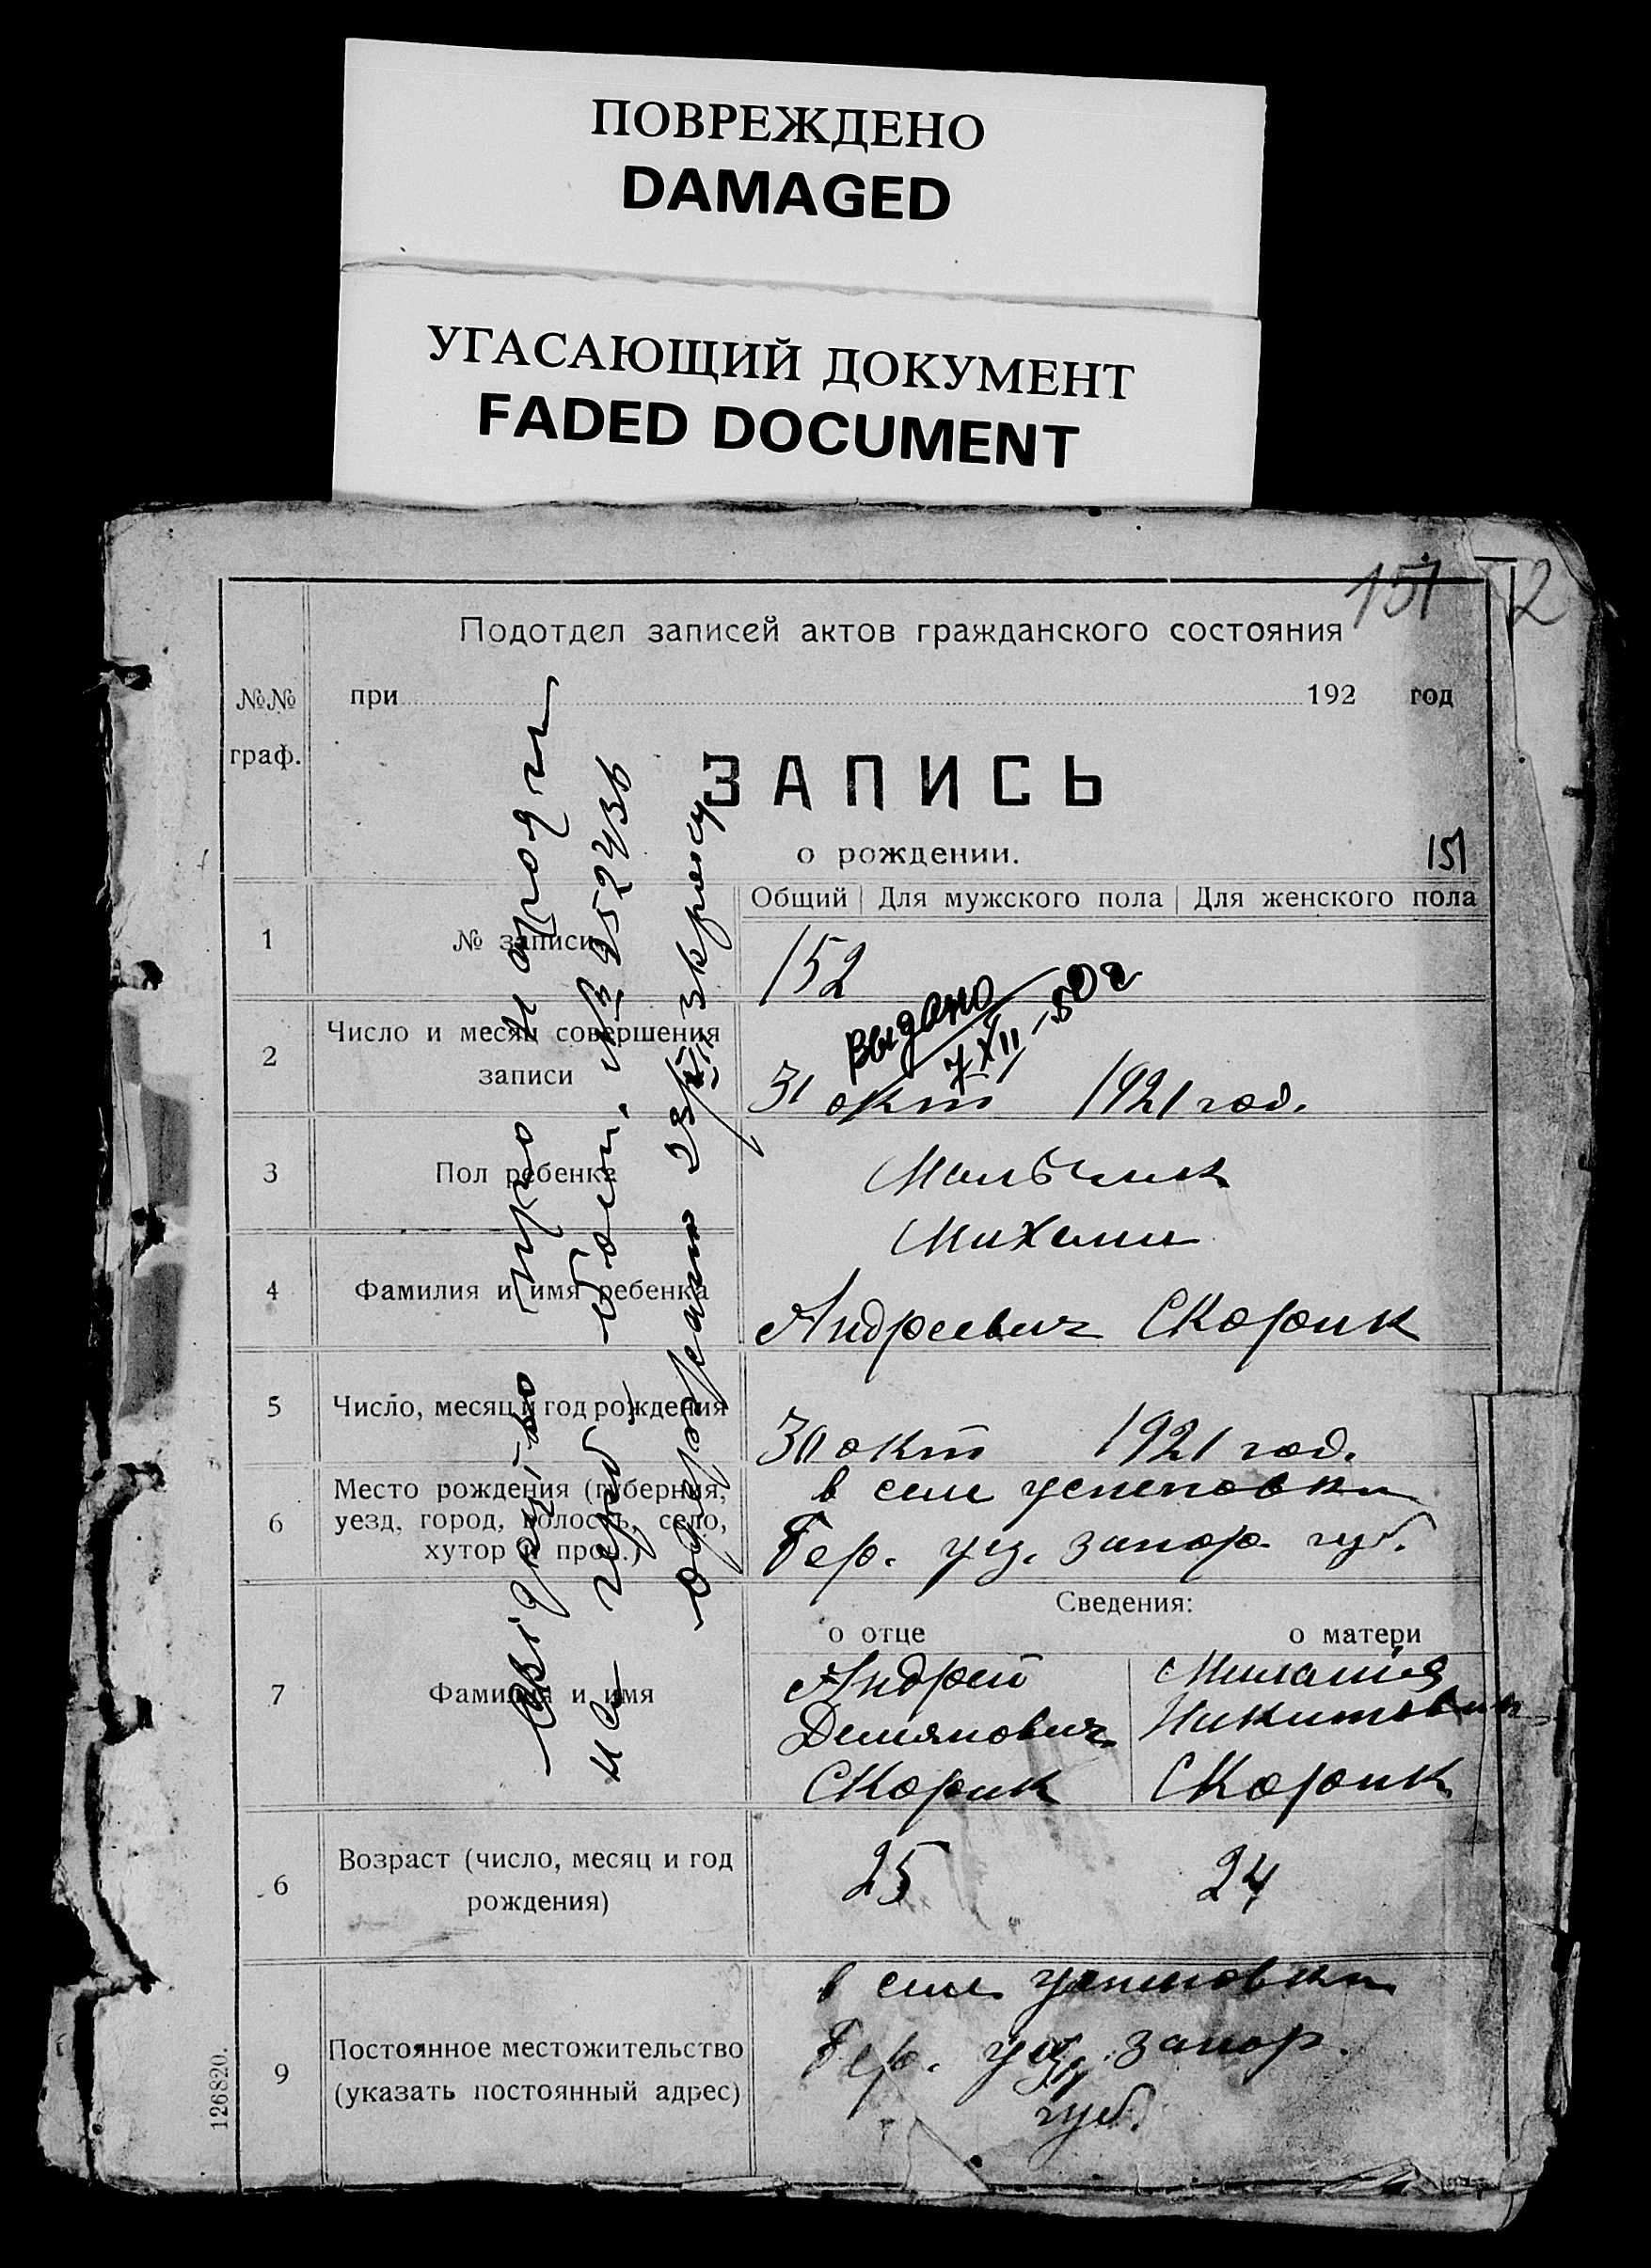 ПОВРЕЖДЕНО
DAMAGED
УГАСАЮЩИЙ ДОКУМЕНТ
FADED DOCUMENT
151
2
Подотдел записей актов гражданского состояния
№№ граф.
при 192 год
ЗАПИСЬ
о рождении.
151
Общий | Для мужского пола | Для женского пола
1 № записи 152
Выдано
7 XII - 50 г
2 Число и месяц совершения записи 31 окт 1921 год.
3 Пол ребенка Мальчик
4 Фамилия и имя ребенка Михаил
Андреевич Скорик
5 Число, месяц и год рождения 30 окт 1921 год.
6 Место рождения (губерния, уезд, город, волость, село, хутор и проч.) в селе успеновки
Бер. уез. запор. губ.
Сведения:
о отце о матери
7 Фамилия и имя Андрей
Демянович
Скорик
Милания
Скорик
6 Возраст (число, месяц и год рождения) 25 24
9 Постоянное местожительство (указать постоянный адрес) в селе успеновки
Бер. уез. запор.
губ.
про народж
на
126820.